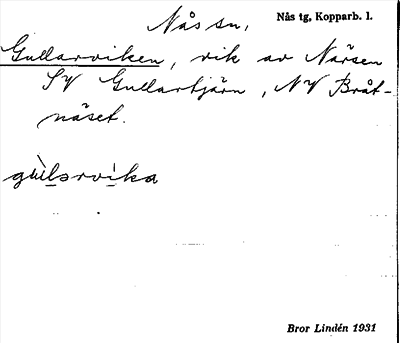 Nås sn. Nås tg, Kopparb. l.
Gullarviken, vik av Närsen
SV Gullartjärn, NV Bråt-
näset.
gùlsrvika
Bror Lindén 1931